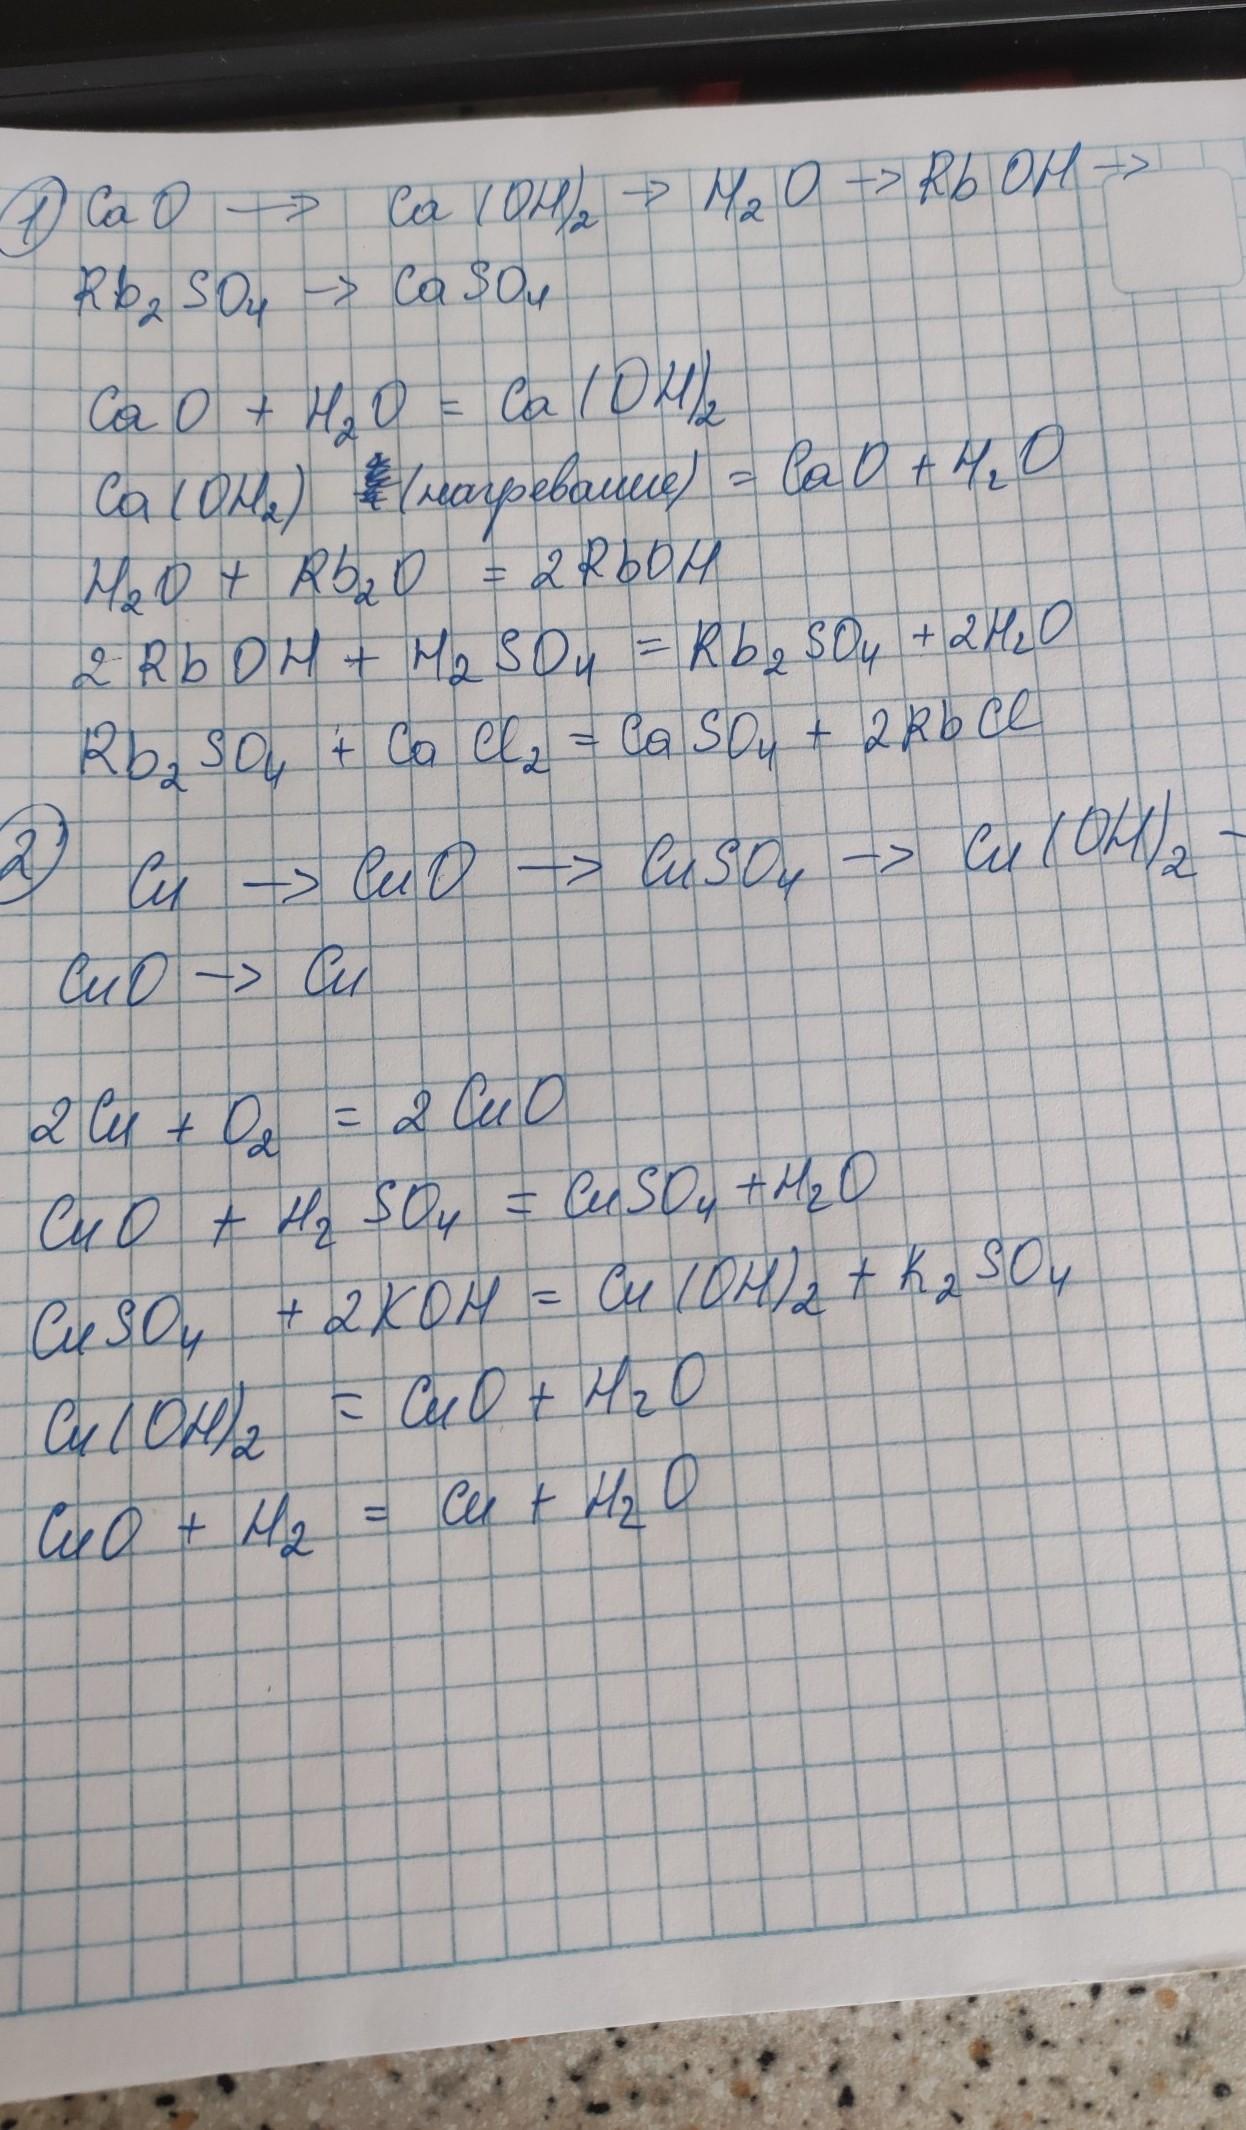 1) CaO → Ca(OH)₂ → H₂O → RbOH →
Rb₂SO₄ → CaSO₄
CaO + H₂O = Ca(OH)₂
Ca(OH₂) (нагревание) = CaO + H₂O
H₂O + Rb₂O = 2RbOH
2RbOH + H₂SO₄ = Rb₂SO₄ + 2H₂O
Rb₂SO₄ + CaCl₂ = CaSO₄ + 2RbCl
2) Cu → CuO → CuSO₄ → Cu(OH)₂ -
CuO → Cu
2Cu + O₂ = 2CuO
CuO + H₂SO₄ = CuSO₄ + H₂O
CuSO₄ + 2KOH = Cu(OH)₂ + K₂SO₄
Cu(OH)₂ = CuO + H₂O
CuO + H₂ = Cu + H₂O